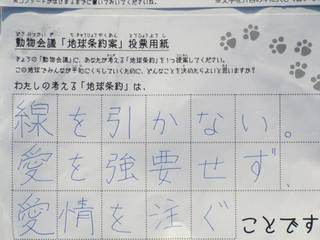 動物会議「地球条約案」投票用紙
きょうの「動物会議」に、あなたが考える「地球条約」を1つ提案してください。
この地球でみんなが平和にくらしていくために、どんなことを決めたらよいと思いますか?
わたしの考える「地球条約」は、
線を引かない。
愛を強要せず、
愛情を注ぐ ことです